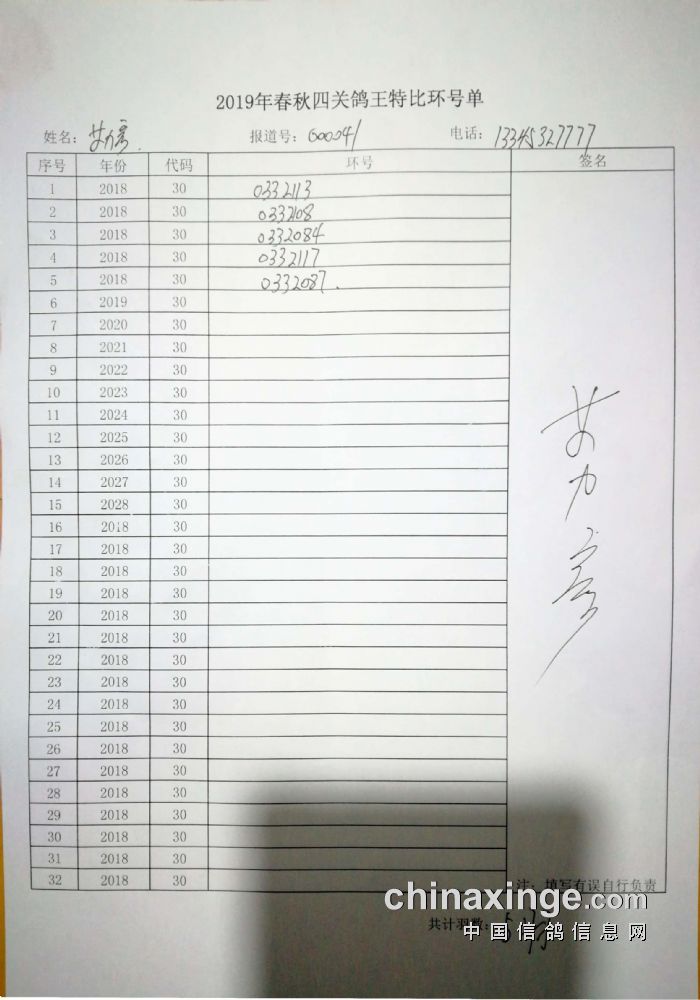 2019年春秋四关鸽王特比环号单
姓名：艾力彦. 报道号：600041 电话：13345327777
序号 年份 代码 环号 签名
1 2018 30 0332113
2 2018 30 0332108
3 2018 30 0332084
4 2018 30 0332117
5 2018 30 0332087.
6 2019 30
7 2020 30
8 2021 30
9 2022 30
10 2023 30
11 2024 30
12 2025 30
13 2026 30
14 2027 30
15 2028 30
16 2018 30
17 2018 30
18 2018 30
19 2018 30
20 2018 30
21 2018 30
22 2018 30
23 2018 30
24 2018 30
25 2018 30
26 2018 30
27 2018 30
28 2018 30
29 2018 30
30 2018 30
31 2018 30
32 2018 30
艾力彦
注：填写有误自行负责
chinaxinge.com
共计羽数：5羽
中国信鸽信息网